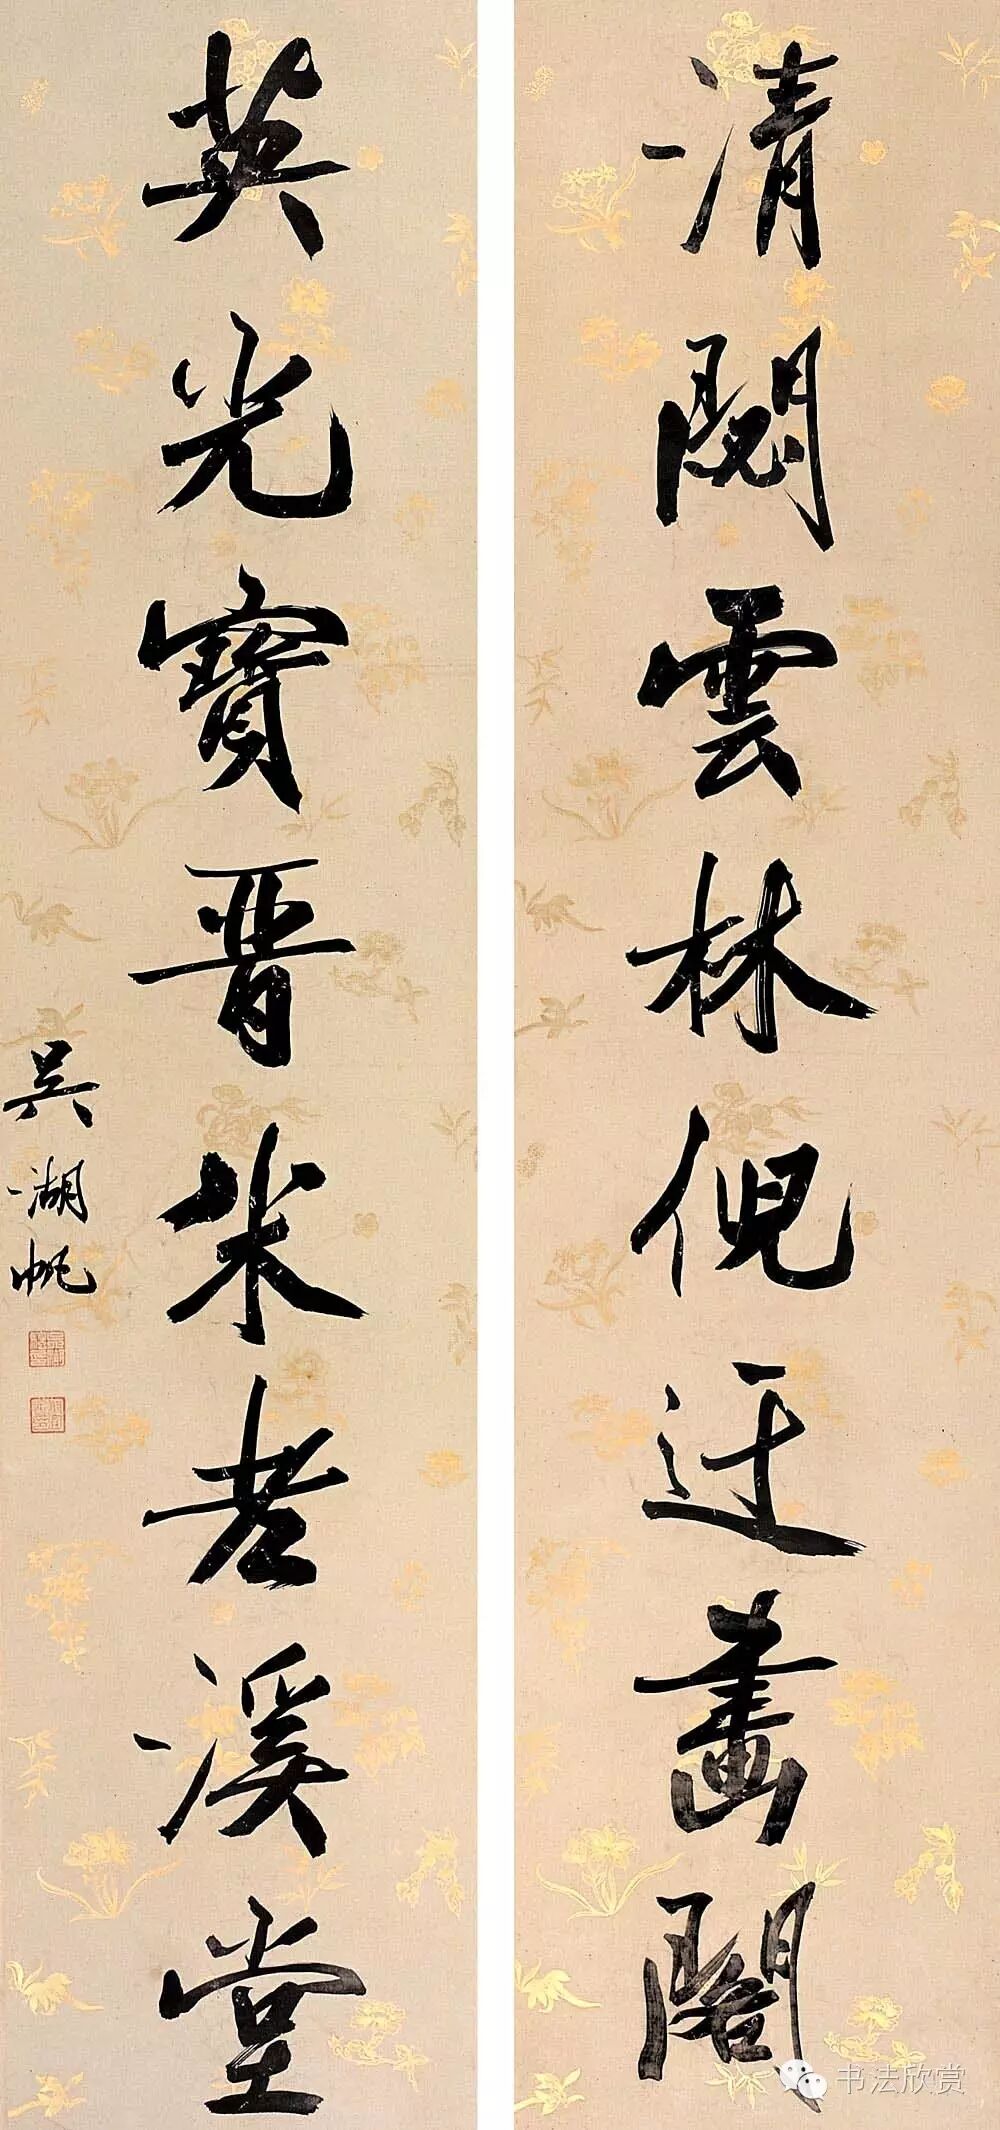 清閟雲林倪迂畫閣
英光寶晉米老溪堂
吴湖帆
书法欣赏